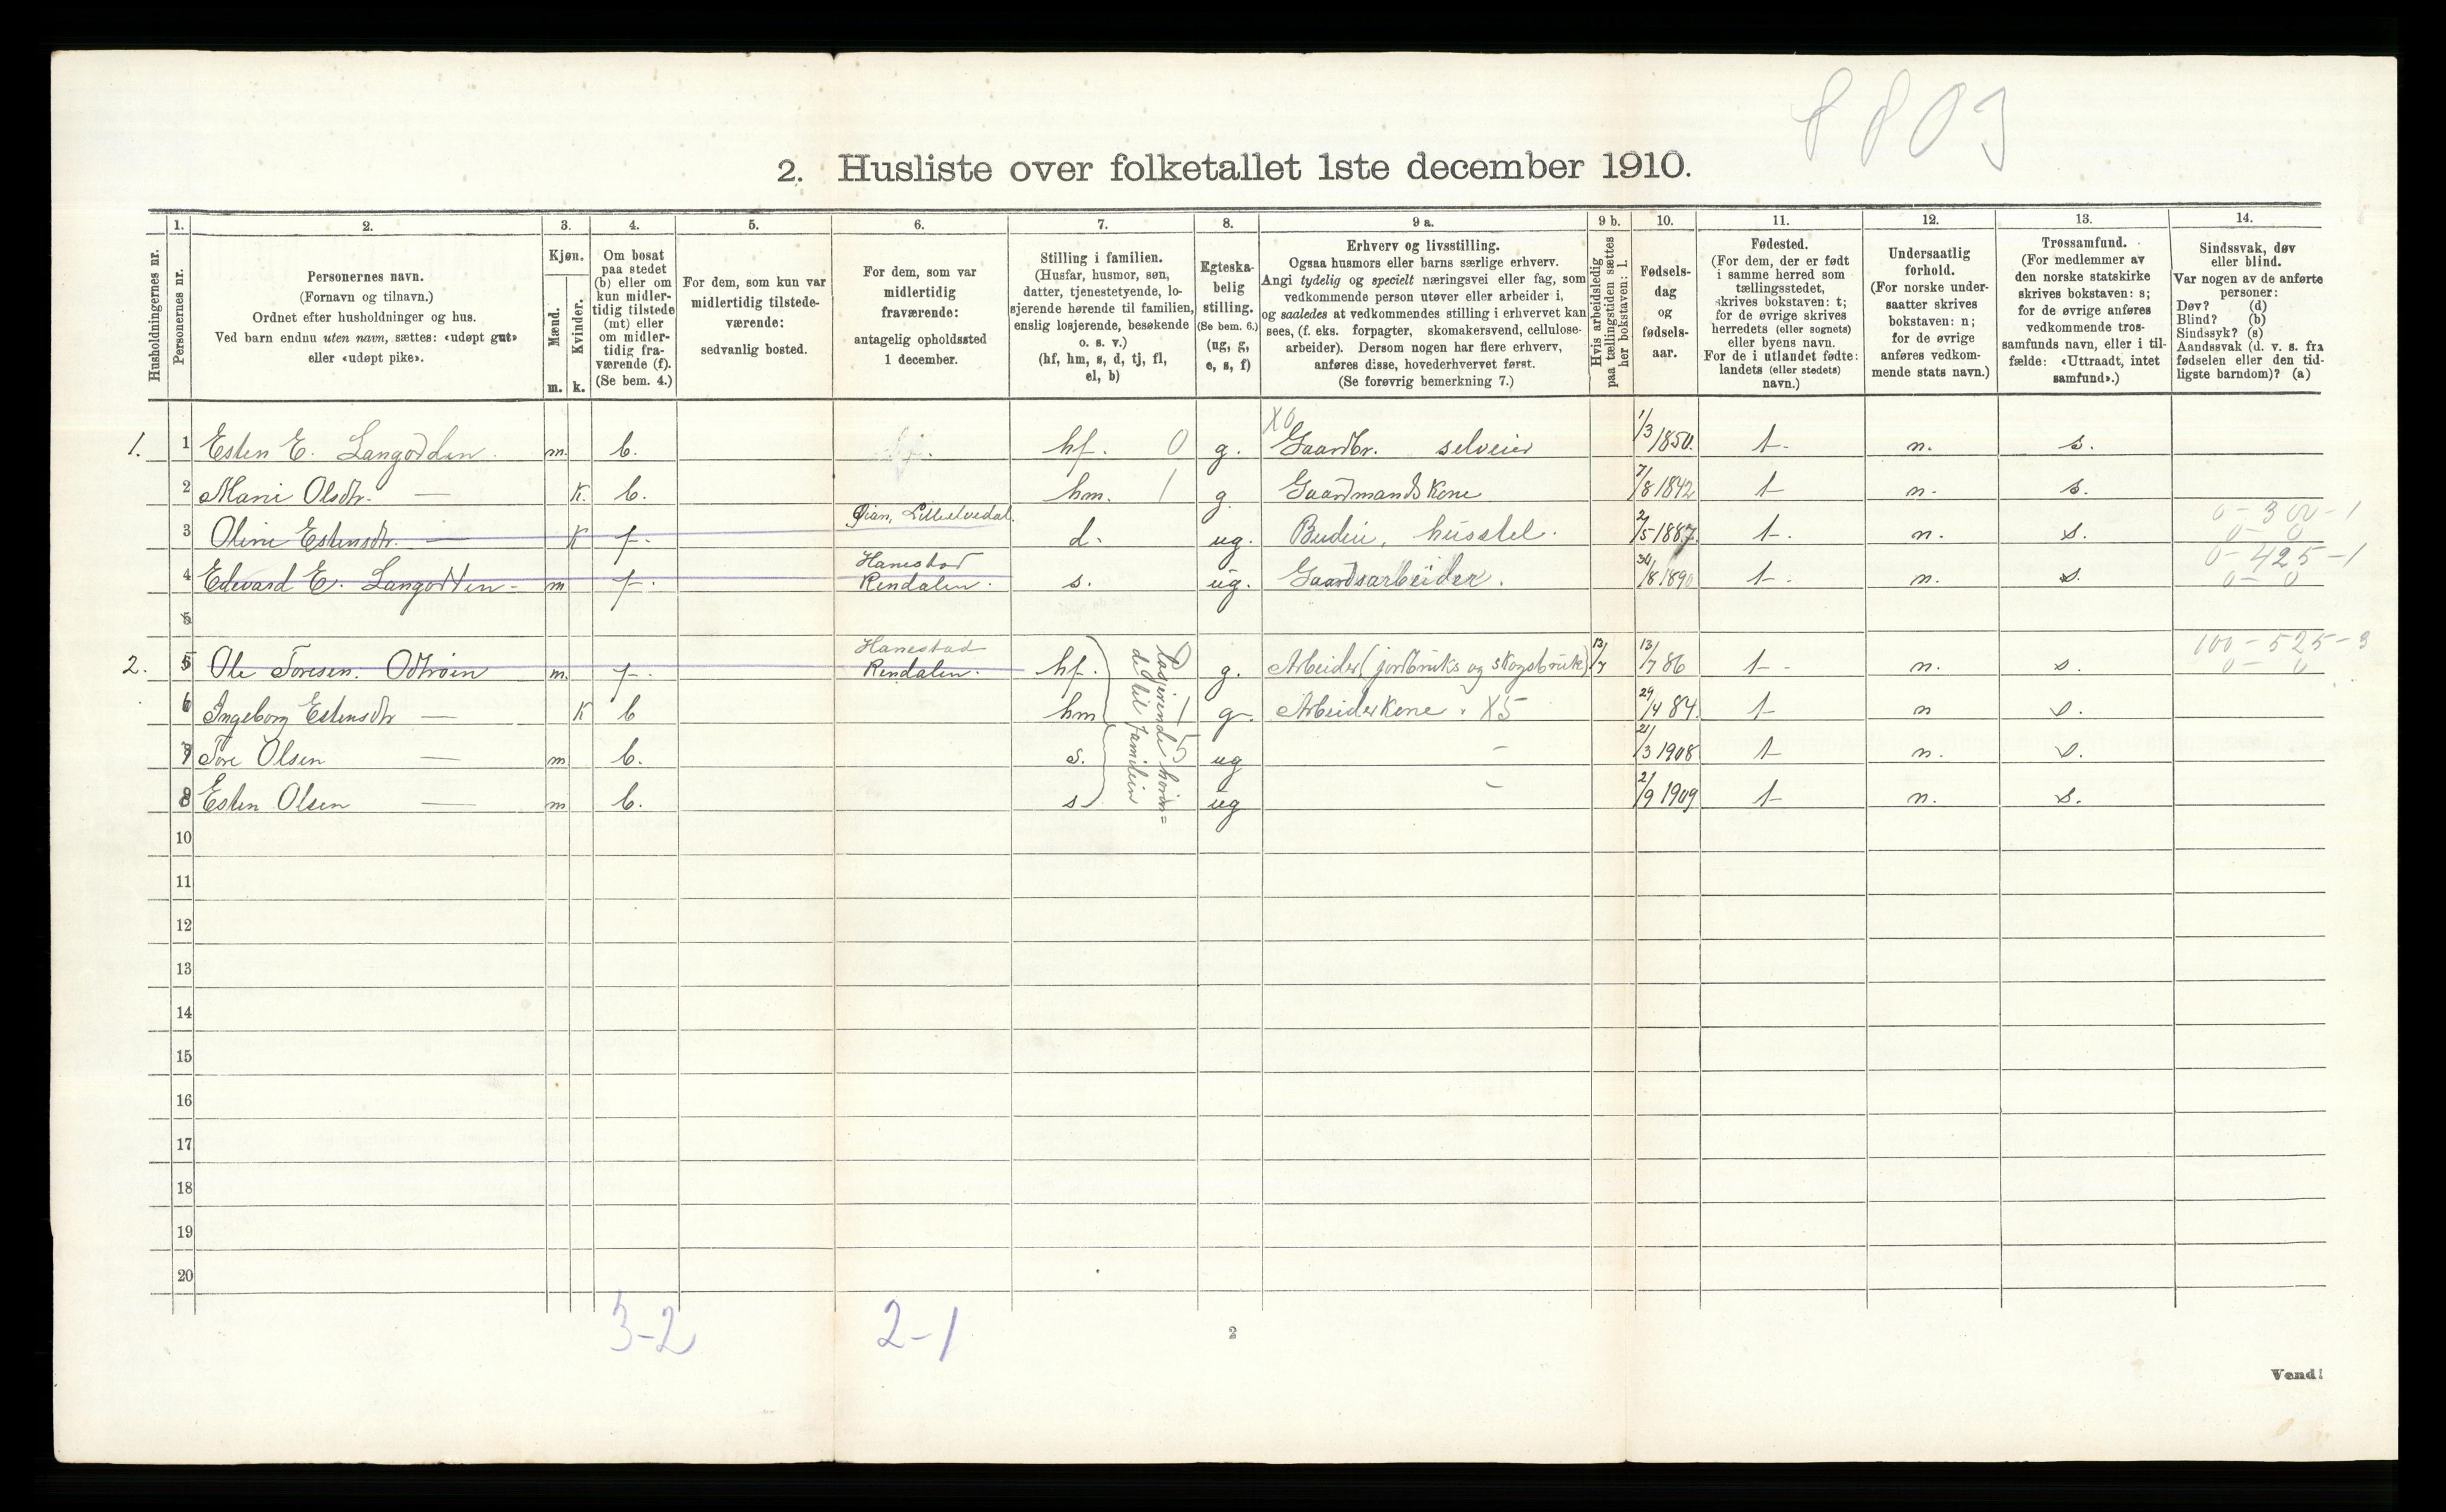 8803
2. Husliste over folketallet 1ste december 1910.
Husholdningernes nr.
1.
Personernes nr.
2.
Personernes navn.
(Fornavn og tilnavn.)
Ordnet efter husholdninger og hus.
Ved barn endnu uten navn, sættes: «udøpt gut»
eller «udøpt pike».
3.
Kjøn.
Mænd.
m.
Kvinder.
k.
4.
Om bosat
paa stedet
(b) eller om
kun midler-
tidig tilstede
(mt) eller
om midler-
tidig fra-
værende (f).
(Se bem. 4.)
5.
For dem, som kun var
midlertidig tilstede-
værende:
sedvanlig bosted.
6.
For dem, som var
midlertidig
fraværende:
antagelig opholdssted
1 december.
7.
Stilling i familien.
(Husfar, husmor, søn,
datter, tjenestetyende, lo-
sjerende hørende til familien,
enslig losjerende, besøkende
o. s. v.)
(hf, hm, s, d, tj, fl,
el, b)
8.
Egteska-
belig
stilling.
(Se bem. 6.)
(ug, g,
e, s, f)
9 a.
Erhverv og livsstilling.
Ogsaa husmors eller barns særlige erhverv.
Angi tydelig og specielt næringsvei eller fag, som
vedkommende person utøver eller arbeider i,
og saaledes at vedkommendes stilling i erhvervet kan
sees, (f. eks. forpagter, skomakersvend, cellulose-
arbeider). Dersom nogen har flere erhverv,
anføres disse, hovederhvervet først.
(Se forøvrig bemerkning 7.)
9 b.
Hvis arbeidsledig
paa tællingstiden sættes
her bokstaven: l.
10.
Fødsels-
dag
og
fødsels-
aar.
11.
Fødested.
(For dem, der er født
i samme herred som
tællingsstedet,
skrives bokstaven: t;
for de øvrige skrives
herredets (eller sognets)
eller byens navn.
For de i utlandet fødte:
landets (eller stedets)
navn.)
12.
Undersaatlig
forhold.
(For norske under-
saatter skrives
bokstaven: n;
for de øvrige
anføres vedkom-
mende stats navn.)
13.
Trossamfund.
(For medlemmer av
den norske statskirke
skrives bokstaven: s;
for de øvrige anføres
vedkommende tros-
samfunds navn, eller i til-
fælde: «Uttraadt, intet
samfund».)
14.
Sindssvak, døv
eller blind.
Var nogen av de anførte
personer:
Døv? (d)
Blind? (b)
Sindssyk? (s)
Aandssvak (d. v. s. fra
fødselen eller den tid-
ligste barndom)? (a)
1. 1 Esten E. Langodden. m. b. hf. 0 g. X0 Gaardbr. selveier 1/3 1850. t. n. s.
2 Marie Olsdtr. — K. b. hm. 1 g. Gaardmandskone 7/8 1842 t n. s.
3 Oline Estensdtr. — K f. Øian, Lilleelvedal. d. ug. Budeie, husstel. 2/5 1887. t. n. s. 0-300-1 0-0
4 Edvard E. Langodden m f. Hanestad Rendalen. s. ug. Gaardsarbeider. 30/8 1890 t. n. s. 0-425-1 0-0
5
2. 5 Ole Toresen. Odtrøen m. f. Hanestad Rendalen. hf. g. Arbeider (jordbruks og skogsbruk) 13/7 13/7 86 t. n. s. 100-525-3 0-0
6 Ingeborg Estensdtr — K b hm 1 g. Arbeiderkone. X5 29/4 84. t n s.
7 Tore Olsen — m b. s. ug - 21/3 1908 t n. s.
8 Esten Olsen — m b. s ug - 2/9 1909 t n. s.
de til familien
10
11
12
13
14
15
16
17
18
19
20
3-2 2-1
2
Vend!